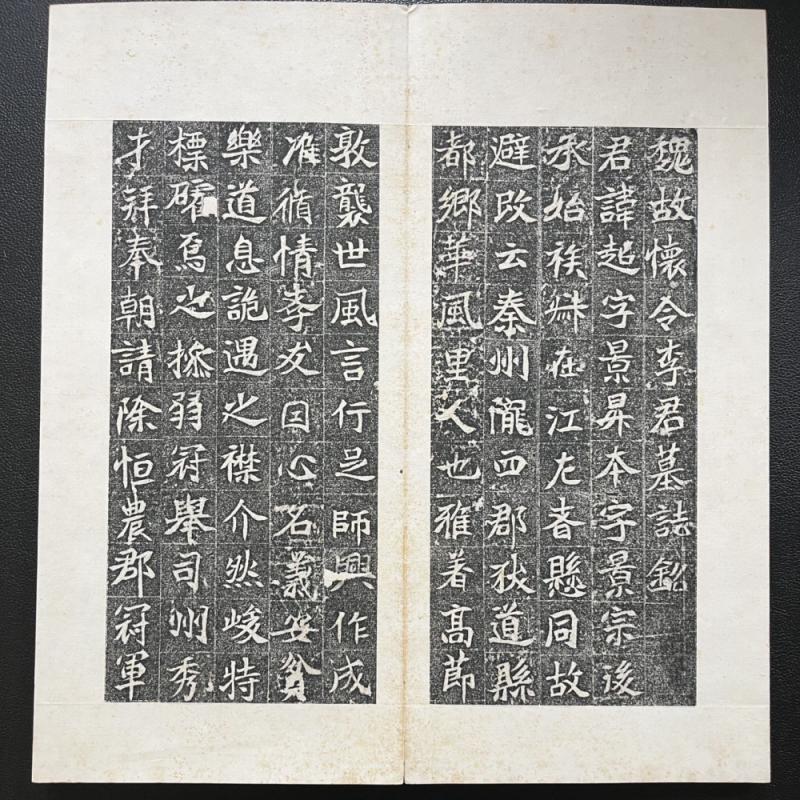 魏故懷令李君墓誌銘
君諱超字景昇本字景宗後
承始族叔在江左者懸同故
避改云秦州隴西郡狄道縣
都鄉華風里人也雅著高節
敦襲世風言行足師興作成
准循情孝友因心名義安貧
樂道息詭遇之襟介然峻特
標礭焉之操弱冠舉司州秀
才拜奉朝請除恒農郡冠軍